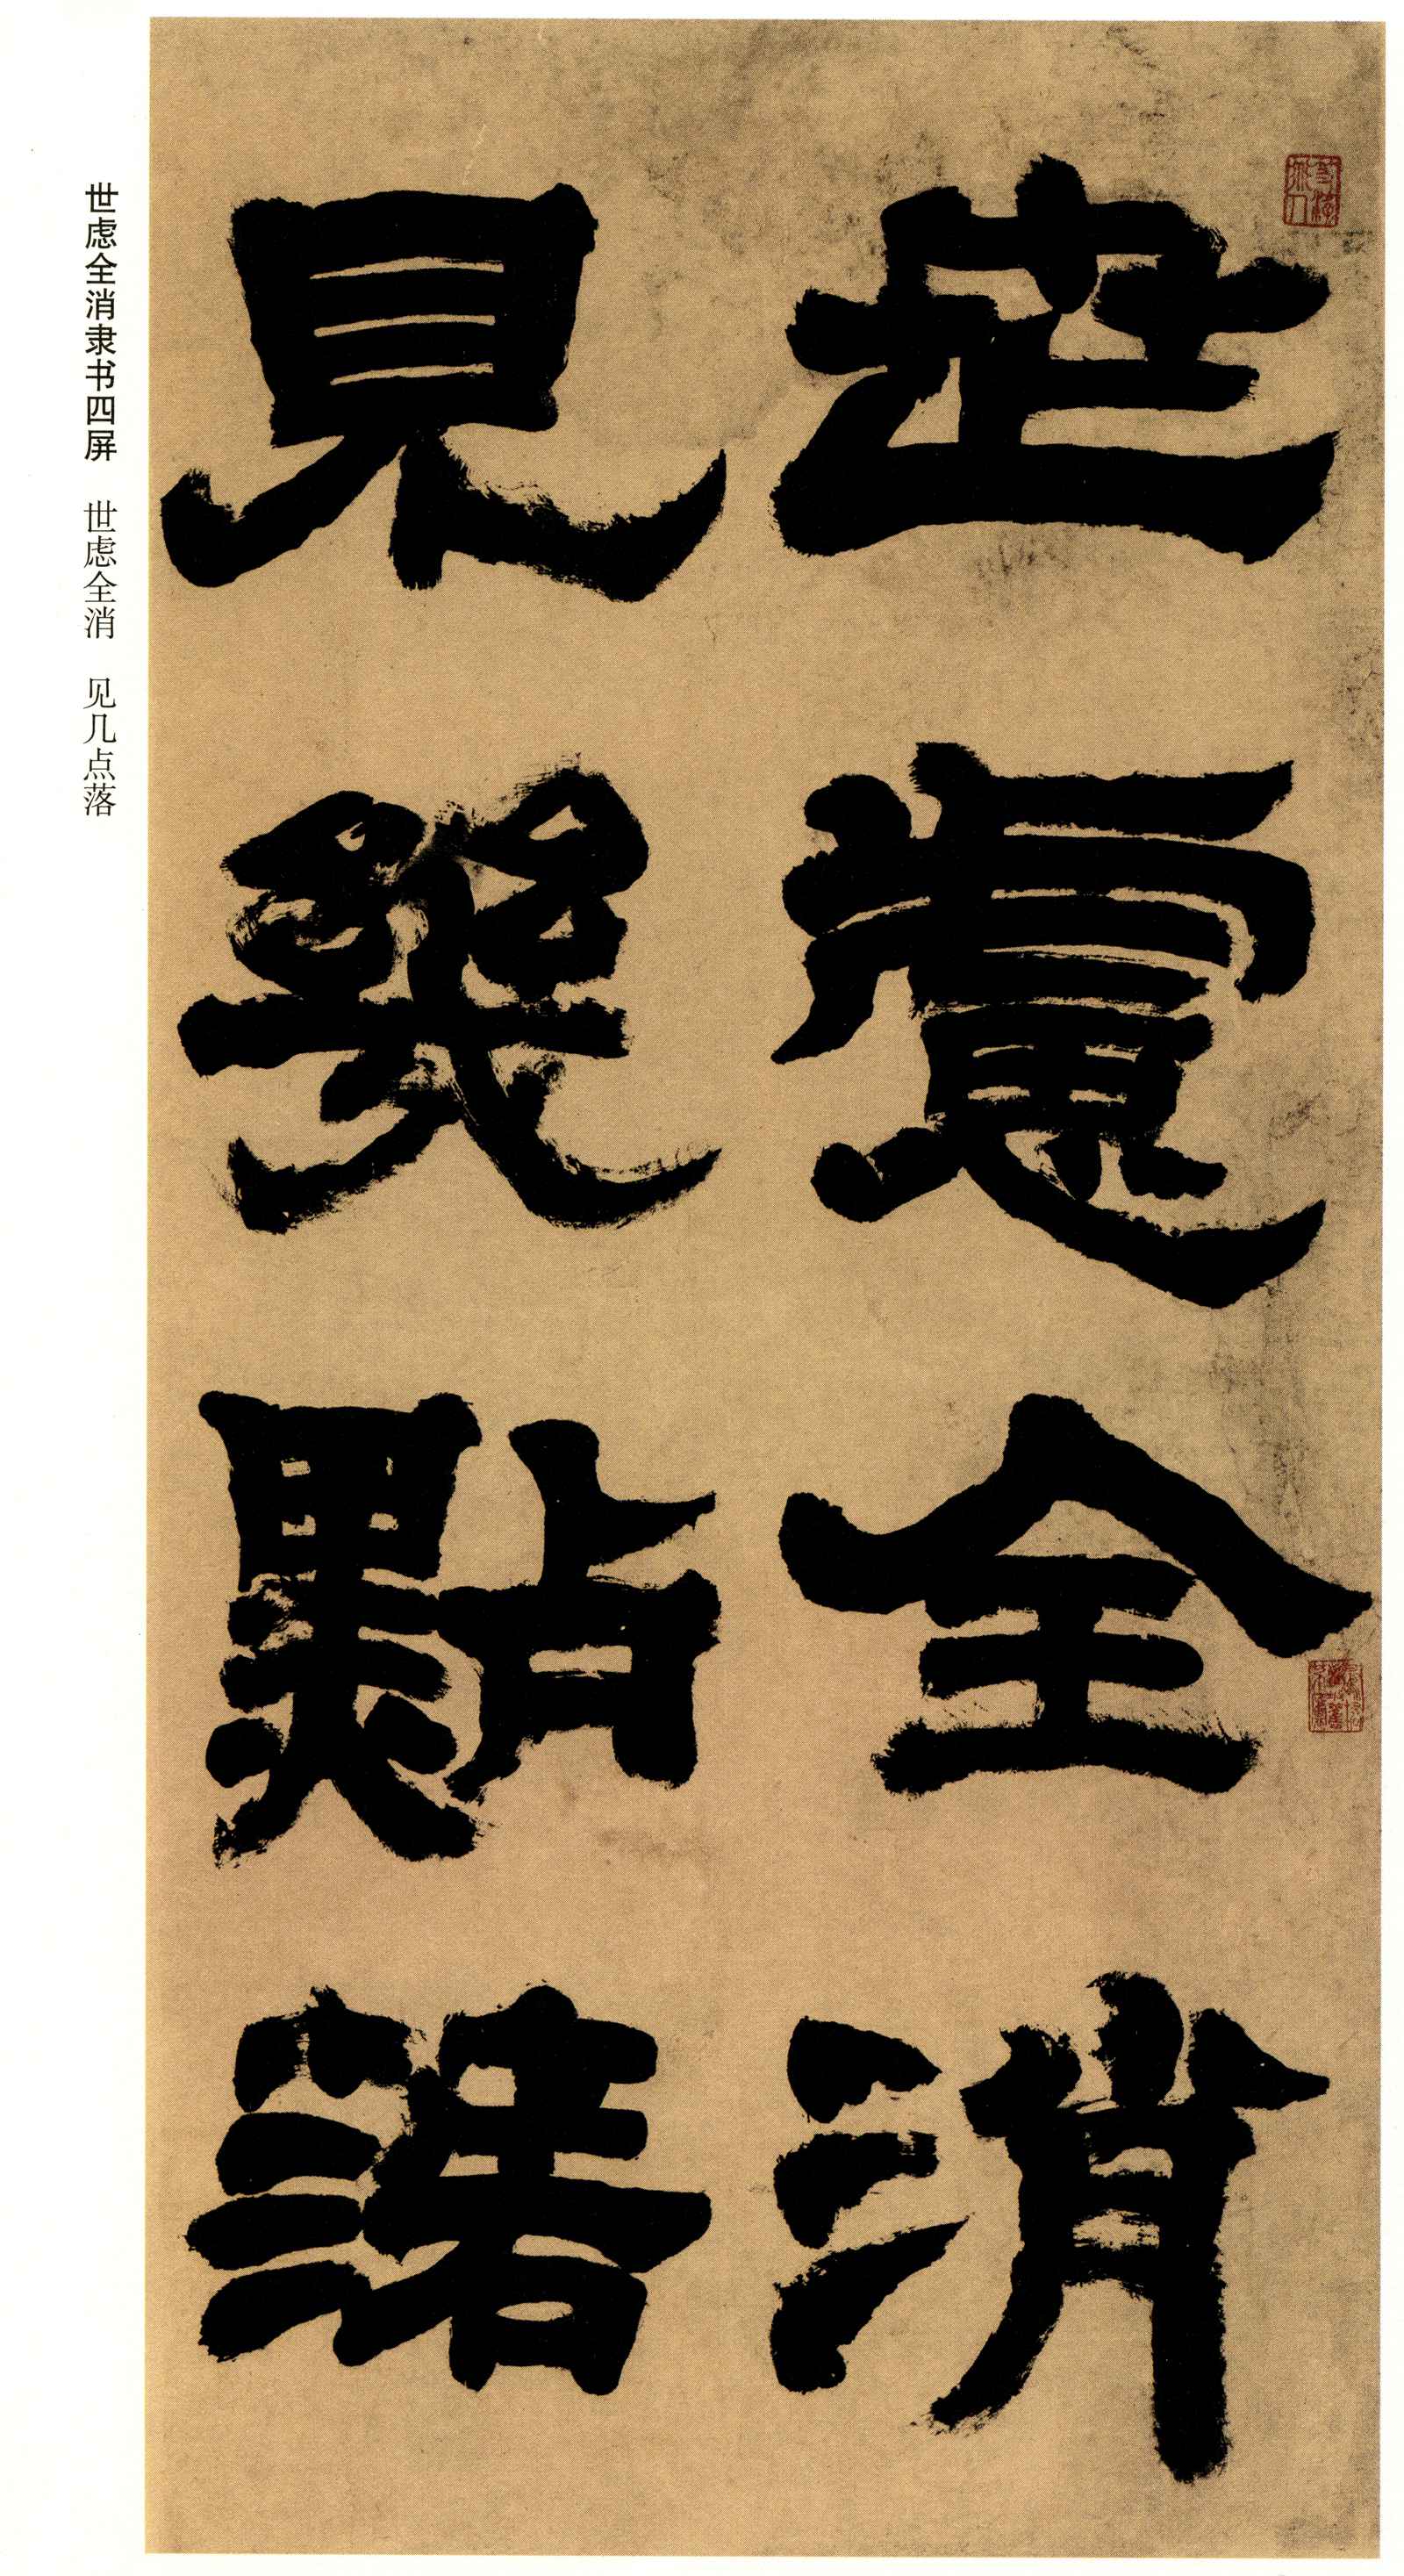 世慮全消
見幾點落
世虑全消隶书四屏　世虑全消　见几点落